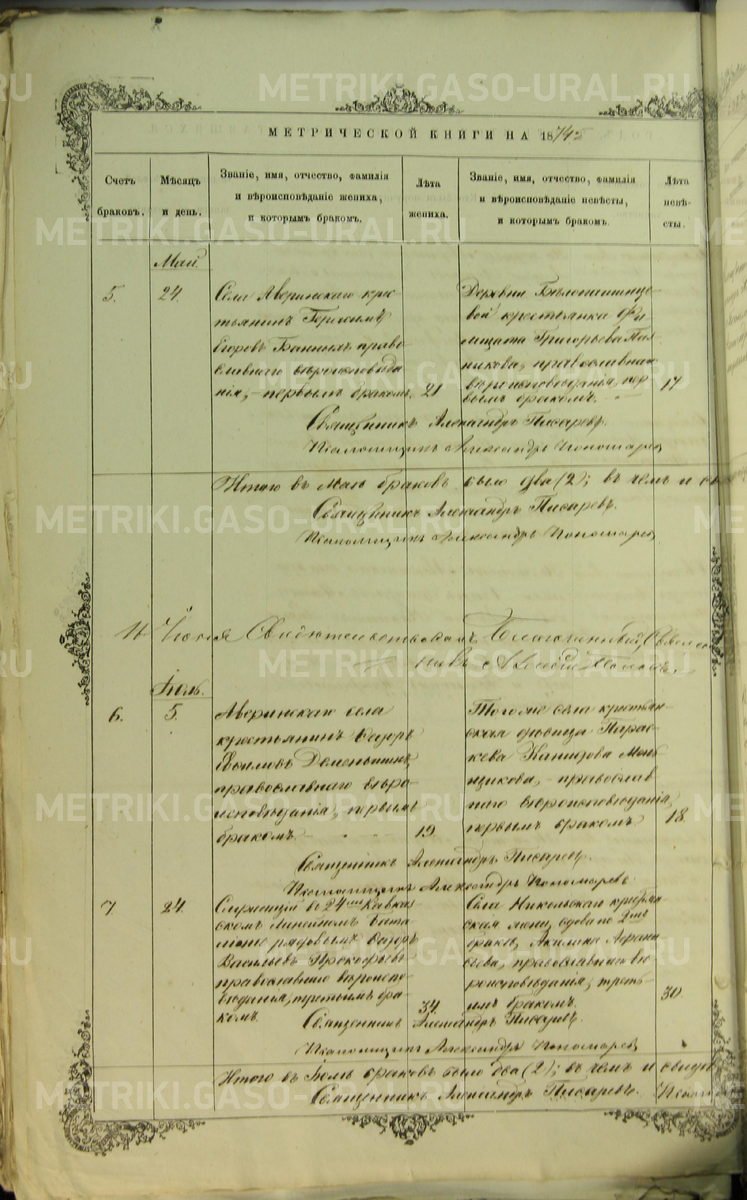 METRIKI.GASO-URAL.RU
МЕТРИЧЕСКОЙ КНИГИ НА 1875
Счетъ браковъ.
Мѣсяцъ и день.
Званіе, имя, отчество, фамилія
и вѣроисповѣданіе жениха,
и которымъ бракомъ.
Лѣта жениха.
Званіе, имя, отчество, фамилія
и вѣроисповѣданіе невѣсты,
и которымъ бракомъ.
Лѣта невѣ-
сты.
Май.
5.
24
Села Аверинскаго крес-
тьянинъ Герасимъ
Егоровъ право-
славнаго вѣроисповѣда
нія, первымъ бракомъ.
21
Деревни
вой крестьянка
Григорьева
православнаго
вѣроисповѣданія, пер-
вымъ бракомъ.
17
Священникъ Александръ Писаревъ.
Псаломщикъ Александръ Пономарев
Итого въ Маѣ браковъ было два (2); въ чемъ и св
Священникъ Александръ Писаревъ.
Псаломщикъ Александръ Пономарев
11 Іюня Свидѣтельствовалъ Благочинный, Священ
никъ
Іюль.
6.
5.
Аверинскаго села
крестьянинъ Ѳедоръ
православнаго вѣро
исповѣданія, первымъ
бракомъ
19
Того же села крестьян-
ская дѣвица Парас-
кева
щикова, православ
наго вѣроисповѣданія,
первымъ бракомъ
18
Священникъ Александръ Писаревъ.
Псаломщикъ Александръ Пономаревъ
7.
24
Служащій въ 24мъ Кавказ-
скомъ Линейномъ бата
ліонѣ рядовымъ Ѳедоръ
Васильевъ Прокофьевъ
православнаго вѣроиспо-
вѣданія, третьимъ бра-
комъ.
34
Села Никольскаго
вдова по 2мъ
бракѣ, Акилина Афанас
ьева, православнаго вѣ
роисповѣданія, треть-
имъ бракомъ.
30
Священникъ Александръ Писаревъ.
Псаломщикъ Александръ Пономарев
Итого въ Іюлѣ браковъ было два (2); въ чемъ и свидѣ
Священникъ Александръ Писаревъ. Псалом